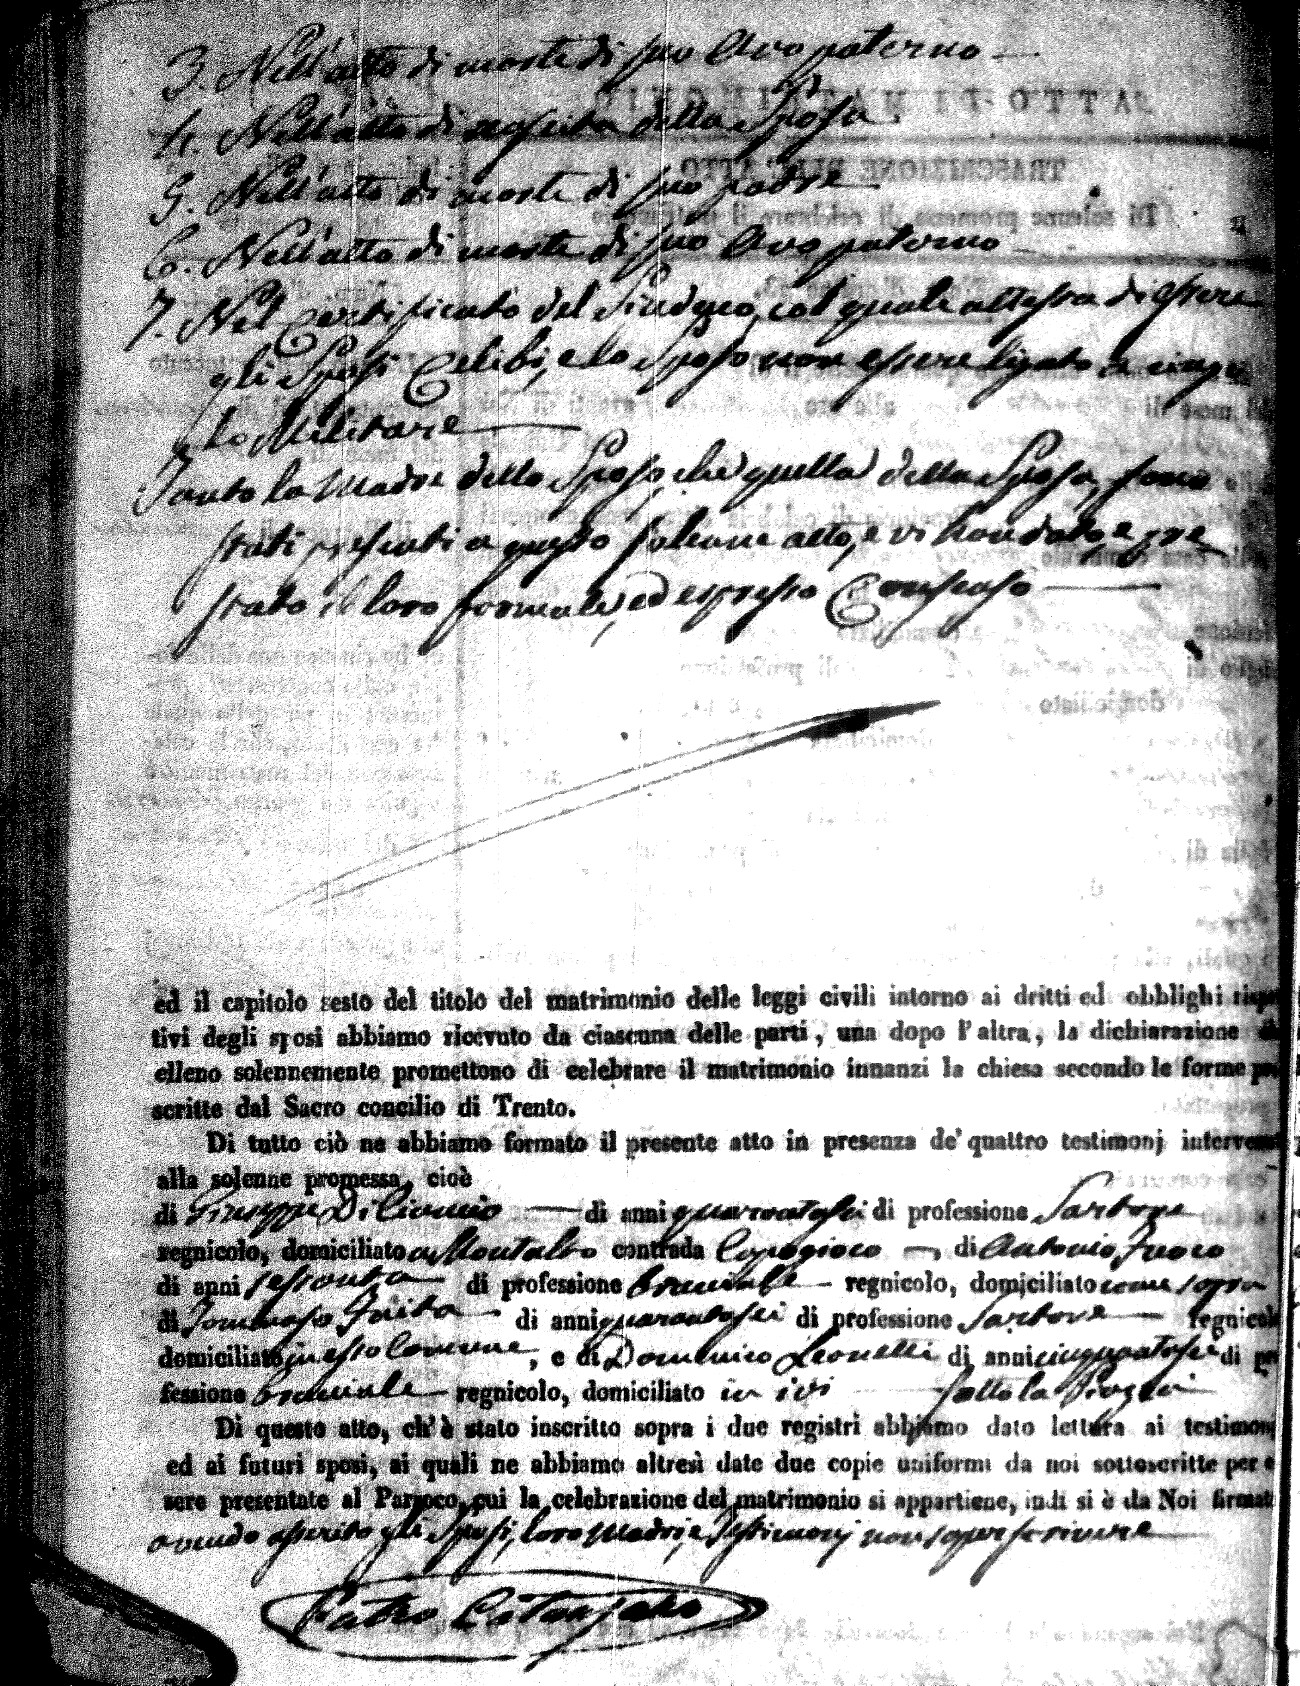 3. Nell'atto di morte di suo Avo paterno
4. Nell'atto di nascita della Sposa
5. Nell'atto di morte di suo padre
6. Nell'atto di morte di suo Avo paterno
7. Nel Certificato del Sindaco, col quale attesta di essere
gli Sposi Celibi, e lo Sposo non essere ligato a vinco
lo Militare
Tanto la Madre dello Sposo, che quella della Sposa, sono
stati presenti a questo solenne atto, e vi han dato, e pre
stato il loro formale, ed espresso Consenso
ed il capitolo sesto del titolo del matrimonio delle leggi civili intorno ai dritti ed obblighi rispet
tivi degli sposi abbiamo ricevuto da ciascuna delle parti, una dopo l'altra, la dichiarazione
elleno solennemente promettono di celebrare il matrimonio innanzi la chiesa secondo le forme pre
scritte dal Sacro concilio di Trento.
Di tutto ciò ne abbiamo formato il presente atto in presenza de' quattro testimonj intervenuti
alla solenne promessa, cioè
di Giuseppe di anni quarantasei di professione Sartore
regnicolo, domiciliato a Montalto contrada di Antonio Fuoco
di anni sessanta di professione bracciale regnicolo, domiciliato come sopra
di Tommaso di anni quarantasei di professione Sartore regnicolo
domiciliato in esso Comune, e di Domenico Leonetti di anni cinquantasei di pro
fessione bracciale regnicolo, domiciliato in ivi sotto la
Di questo atto, ch'è stato inscritto sopra i due registri abbiamo dato lettura ai testimonj
ed ai futuri sposi, ai quali ne abbiamo altresì date due copie uniformi da noi sottoscritte per es
sere presentate al Parroco, cui la celebrazione del matrimonio si appartiene, indi si è da Noi firmato
avendo asserito gli Sposi, loro Madri, e Testimonj non saper scrivere